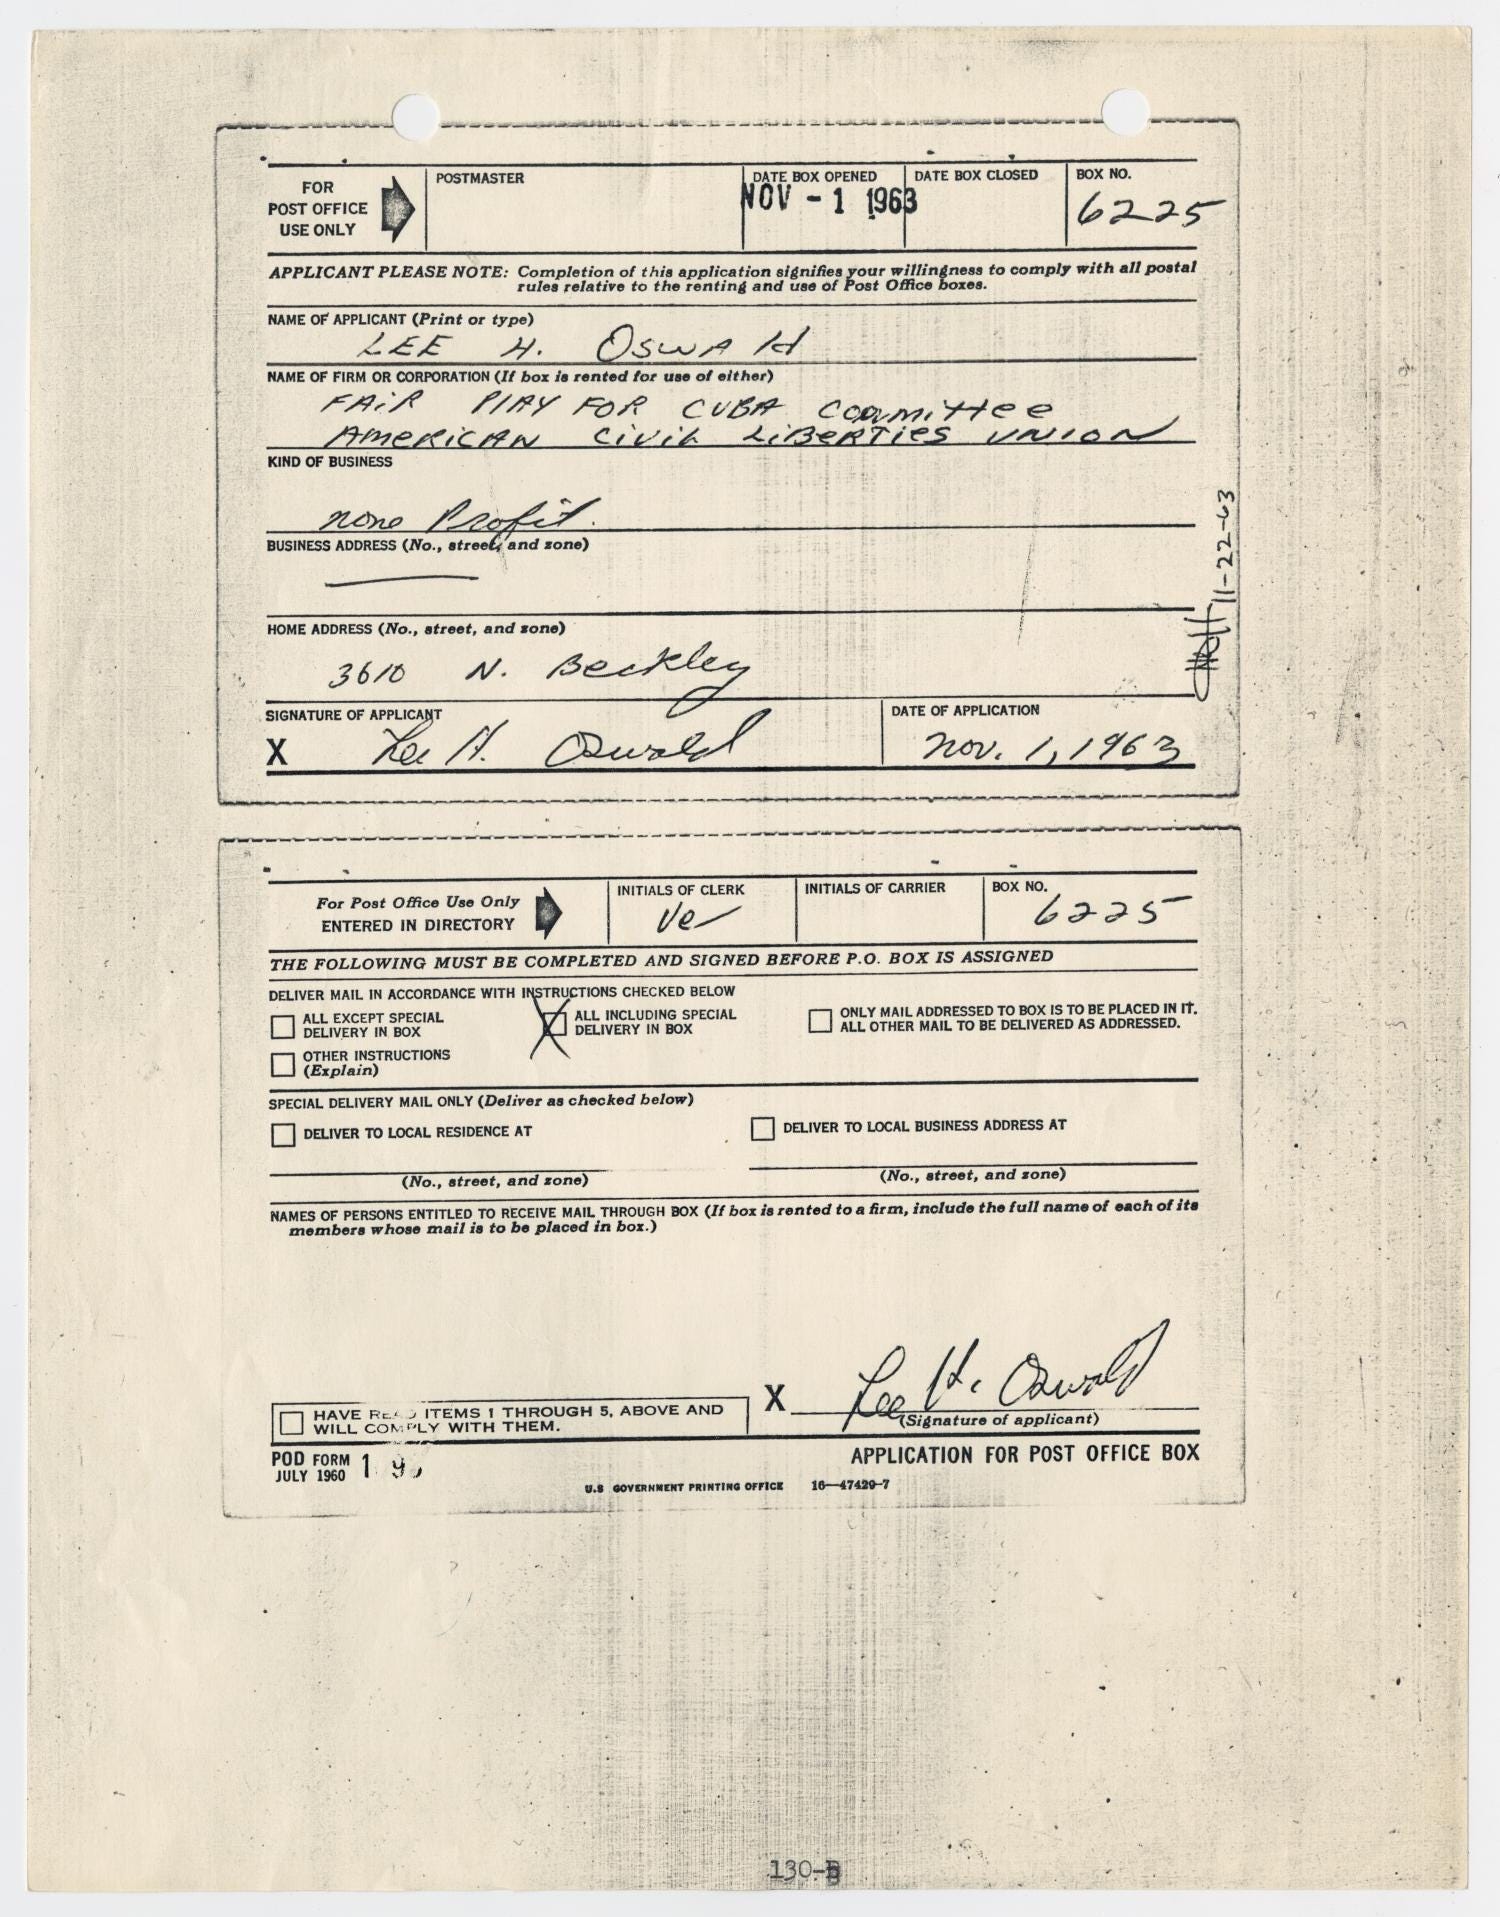 FOR
POST OFFICE
USE ONLY
POSTMASTER
DATE BOX OPENED
NOV - 1 1963
DATE BOX CLOSED
BOX NO.
6225
APPLICANT PLEASE NOTE: Completion of this application signifies your willingness to comply with all postal
rules relative to the renting and use of Post Office boxes.
NAME OF APPLICANT (Print or type)
LEE H. OSWAld
NAME OF FIRM OR CORPORATION (If box is rented for use of either)
FAiR PlAY FOR CUBA Committee
AMERICAN CiviL LiBERTies UNION
KIND OF BUSINESS
none Profit.
BUSINESS ADDRESS (No., street, and zone)
HOME ADDRESS (No., street, and zone)
3610 N. Beckley
SIGNATURE OF APPLICANT
X Lee H. Oswald
DATE OF APPLICATION
Nov. 1, 1963
11-22-63
For Post Office Use Only
ENTERED IN DIRECTORY
INITIALS OF CLERK
INITIALS OF CARRIER
BOX NO.
6225
THE FOLLOWING MUST BE COMPLETED AND SIGNED BEFORE P.O. BOX IS ASSIGNED
DELIVER MAIL IN ACCORDANCE WITH INSTRUCTIONS CHECKED BELOW
ALL EXCEPT SPECIAL
DELIVERY IN BOX
X ALL INCLUDING SPECIAL
DELIVERY IN BOX
ONLY MAIL ADDRESSED TO BOX IS TO BE PLACED IN IT.
ALL OTHER MAIL TO BE DELIVERED AS ADDRESSED.
OTHER INSTRUCTIONS
(Explain)
SPECIAL DELIVERY MAIL ONLY (Deliver as checked below)
DELIVER TO LOCAL RESIDENCE AT
DELIVER TO LOCAL BUSINESS ADDRESS AT
(No., street, and zone)
(No., street, and zone)
NAMES OF PERSONS ENTITLED TO RECEIVE MAIL THROUGH BOX (If box is rented to a firm, include the full name of each of its
members whose mail is to be placed in box.)
X Lee H. Oswald
(Signature of applicant)
HAVE READ ITEMS 1 THROUGH 5, ABOVE AND
WILL COMPLY WITH THEM.
POD FORM
JULY 1960
APPLICATION FOR POST OFFICE BOX
U.S GOVERNMENT PRINTING OFFICE 16—47429-7
130-B